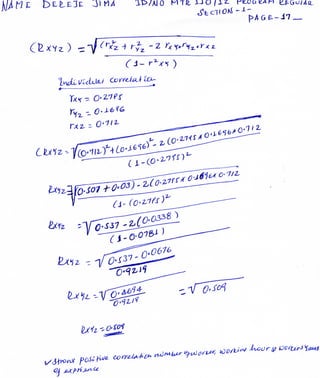 NAME DEREJE JIMA ID/NO MTR 110/12 PROGRAM REGULAR
SECTION -1-
PAGE-17
(Rxyz) = √(r²xz + r²yz - 2 rxy.ryz.rxz
(1 - r²xy)
Individual correlation
rxy = 0.2795
ryz = 0.1696
rxz = 0.712
(Rxyz = √(0.712)² + (0.1696)² - 2(0.2795x0.1696x0.712
(1-(0.2795)²
Rxyz = √(0.507 + 0.03) - 2(0.2795x0.1696x0.712
(1-(0.2795)²
Rxyz = √0.537 - 2(0.0338)
(1 - 0.0781)
Rxyz = √0.537 - 0.0676
0.9219
Rxyz = √0.4694 = √0.509
0.9219
Rxyz = 0.509
✓ Strong positive correlation number of worker, working hour & workers years
of exprience